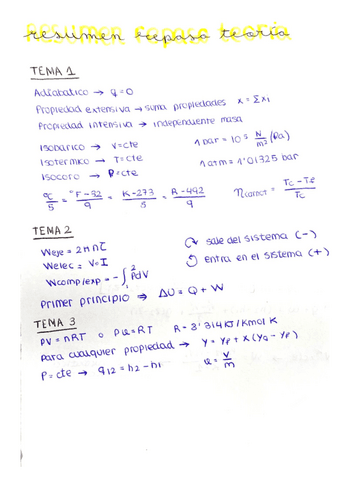 resumen repaso teoría
TEMA 1
Adiabático → q=0
Propiedad extensiva → suma propiedades x = Σxi
Propiedad intensiva → independiente masa
Isobárico → V=cte 1 bar = 10⁵ N/m² (Pa)
Isotérmico → T=cte
Isocoro → P=cte 1 atm = 1'01325 bar
ºC/5 = (ºF-32)/9 = (K-273)/5 = (R-492)/9 ηcarnot = (Tc-TF)/Tc
TEMA 2
Weje = 2πnζ sale del sistema (-)
Welec = V·I entra en el sistema (+)
Wcomp/exp = -∫₁² PdV
Primer principio ⇒ ΔU = Q + W
TEMA 3
PV = nRT o Pv=RT R = 8'314 KJ/Kmol K
Para cualquier propiedad → y = yf + x(yg - yf)
P=cte → q12 = h2 - h1 v = V/m